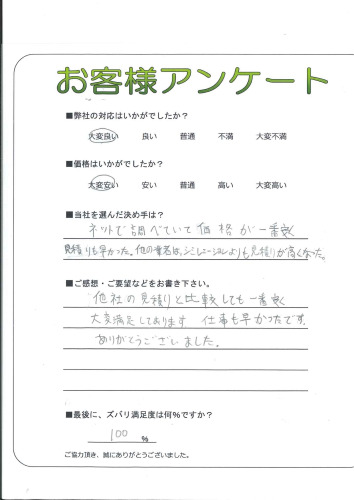 お客様アンケート
■弊社の対応はいかがでしたか?
大変良い 良い 普通 不満 大変不満
■価格はいかがでしたか?
大変安い 安い 普通 高い 大変高い
■当社を選んだ決め手は?
ネットで調べていて価格が一番安く
見積りも早かった。他の業者は、シュミレーションよりも見積りが高くなった。
■ご感想・ご要望などをお書き下さい。
他社の見積りと比較しても一番安く
大変満足しております 仕事も早かったです。
ありがとうございました。
■最後に、ズバリ満足度は何%ですか?
100 %
ご協力頂き、誠にありがとうございました。